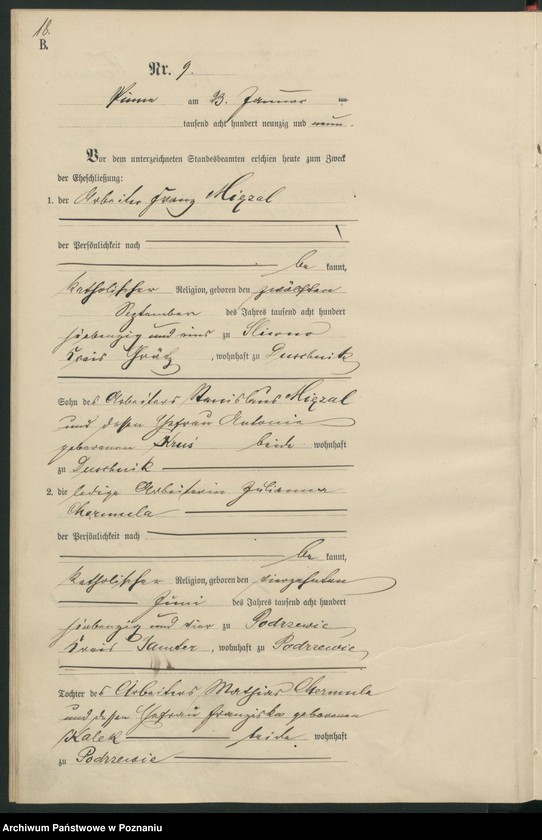 18.
B.
Nr. 9.
Pinne am 23. Januar
tausend acht hundert neunzig und neun.
Vor dem unterzeichneten Standesbeamten erschien heute zum Zweck
der Eheschließung:
1. der Arbeiter Franz Migzal
der Persönlichkeit nach
be kannt,
katholischer Religion, geboren den zwölften
September des Jahres tausend acht hundert
siebenzig und eins zu Sliwno
Kreis Grätz, wohnhaft zu Duschnik
Sohn des Arbeiters Stanislaus Migzal
und dessen Ehefrau Antonie
geborenen Kruś beide wohnhaft
zu Duschnik
2. die ledige Arbeiterin Julianna
Chermula
der Persönlichkeit nach
be kannt,
katholischer Religion, geboren den vierzehnten
Juni des Jahres tausend acht hundert
siebenzig und vier zu Podrzewie
Kreis Samter, wohnhaft zu Podrzewie,
Tochter des Arbeiters Mathias Chermula
und dessen Ehefrau Franziska geborenen
Kalek beide wohnhaft
zu Podrzewie
Archiwum Państwowe w Poznaniu